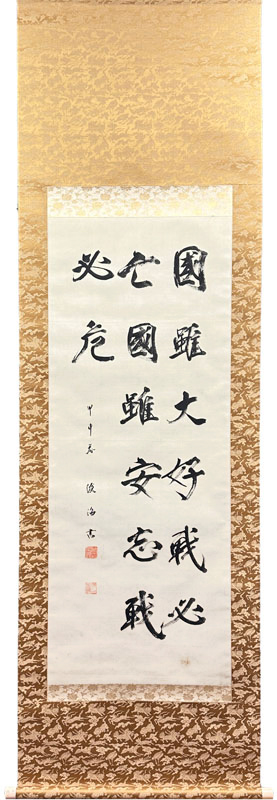 國雖大好戰必
亡國雖安忘戰
必危
甲申春
海書